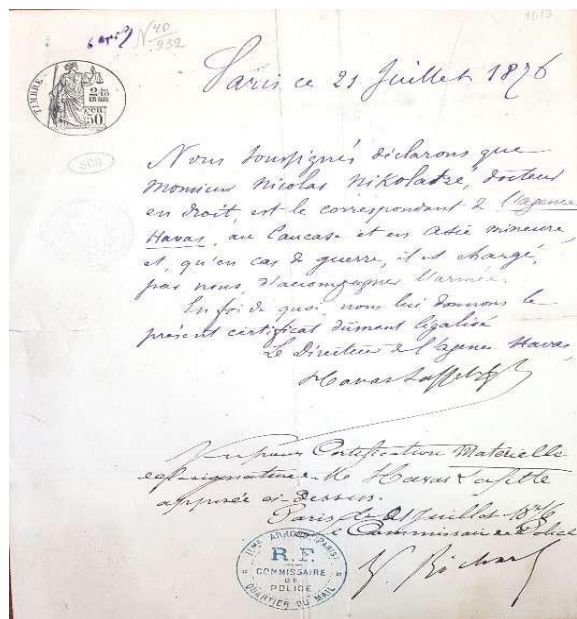 N 40
932
1613
TIMBRE
2/10
EN SUS
50
SCB
Paris ce 21 Juillet 1876
Nous soussignés déclarons que
Monsieur Nicolas Nikoladzé, docteur
en droit, est le correspondant de l'agence
Havas, au Caucase et en Asie mineure,
et, qu'en cas de guerre, il est chargé,
par nous, d'accompagner l'armée.
En foi de quoi, nous lui donnons le
présent certificat dûment légalisé
Le Directeur de l'agence Havas,
Havas Laffitte
Vu pour Certification Matérielle
signature Havas Lafitte
apposée ci-dessus.
Paris, le 21 Juillet 1876
Commissaire de Police
IIME ARRONDT (PARIS)
R.F.
COMMISSAIRE
DE
POLICE
QUARTIER DU MAIL